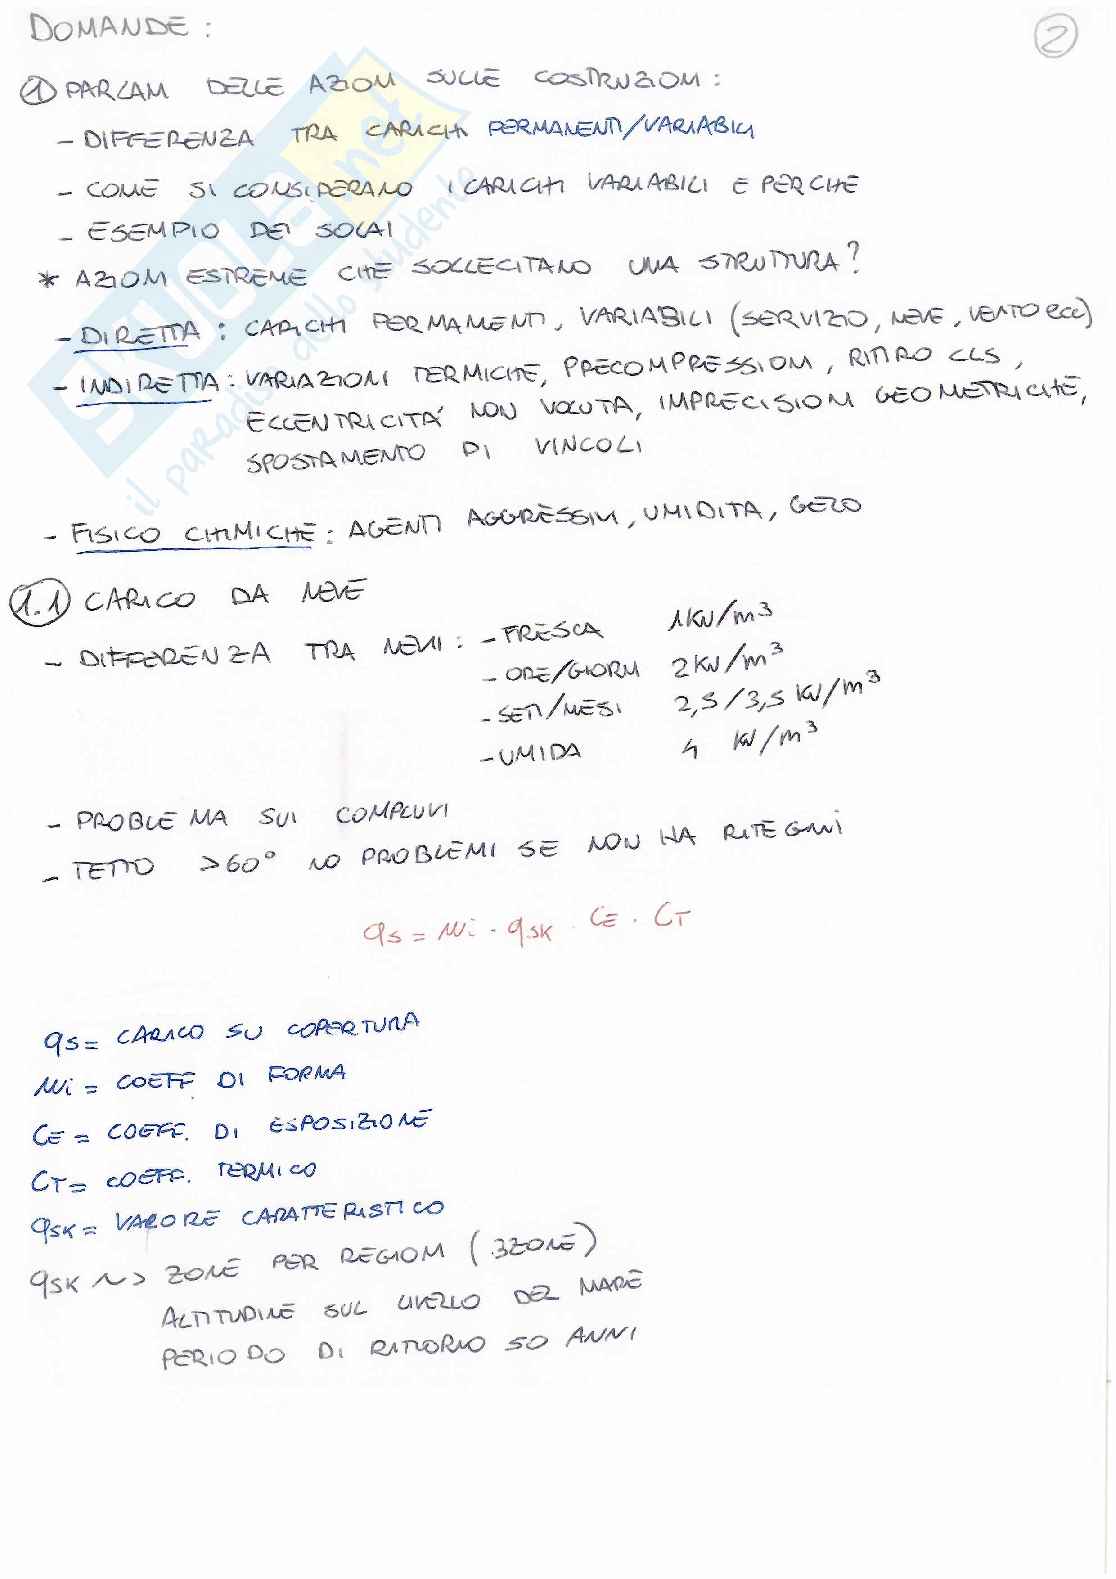 DOMANDE :
2
① PARLAMI DELLE AZIONI SULLE COSTRUZIONI :
- DIFFERENZA TRA CARICHI PERMANENTI/VARIABILI
- COME SI CONSIDERANO I CARICHI VARIABILI E PERCHE
- ESEMPIO DEI SOLAI
* AZIONI ESTREME CHE SOLLECITANO UNA STRUTTURA?
- DIRETTA : CARICHI PERMANENTI, VARIABILI (SERVIZIO, NEVE, VENTO ECC)
- INDIRETTA : VARIAZIONI TERMICHE, PRECOMPRESSIONI, RITIRO CLS,
ECCENTRICITA' NON VOLUTA, IMPRECISIONI GEOMETRICHE,
SPOSTAMENTO DI VINCOLI
- FISICO CHIMICHE : AGENTI AGGRESSIVI, UMIDITA, GELO
1.1 CARICO DA NEVE
- DIFFERENZA TRA NEVI : - FRESCA 1 KN/m³
- ORE/GIORNI 2 KN/m³
- SETT/MESI 2,5/3,5 KN/m³
- UMIDA 4 KN/m³
- PROBLEMA SUI COMPLUVI
- TETTO >60° NO PROBLEMI SE NON HA RITEGNI
qs = µi · qsk · CE · CT
qs = CARICO SU COPERTURA
µi = COEFF DI FORMA
CE = COEFF. DI ESPOSIZIONE
CT = COEFF. TERMICO
qsk = VALORE CARATTERISTICO
qsk ~> ZONE PER REGIONI (3 ZONE)
ALTITUDINE SUL LIVELLO DEL MARE
PERIODO DI RITORNO 50 ANNI
SKUOLA.net
il paradiso dello studente